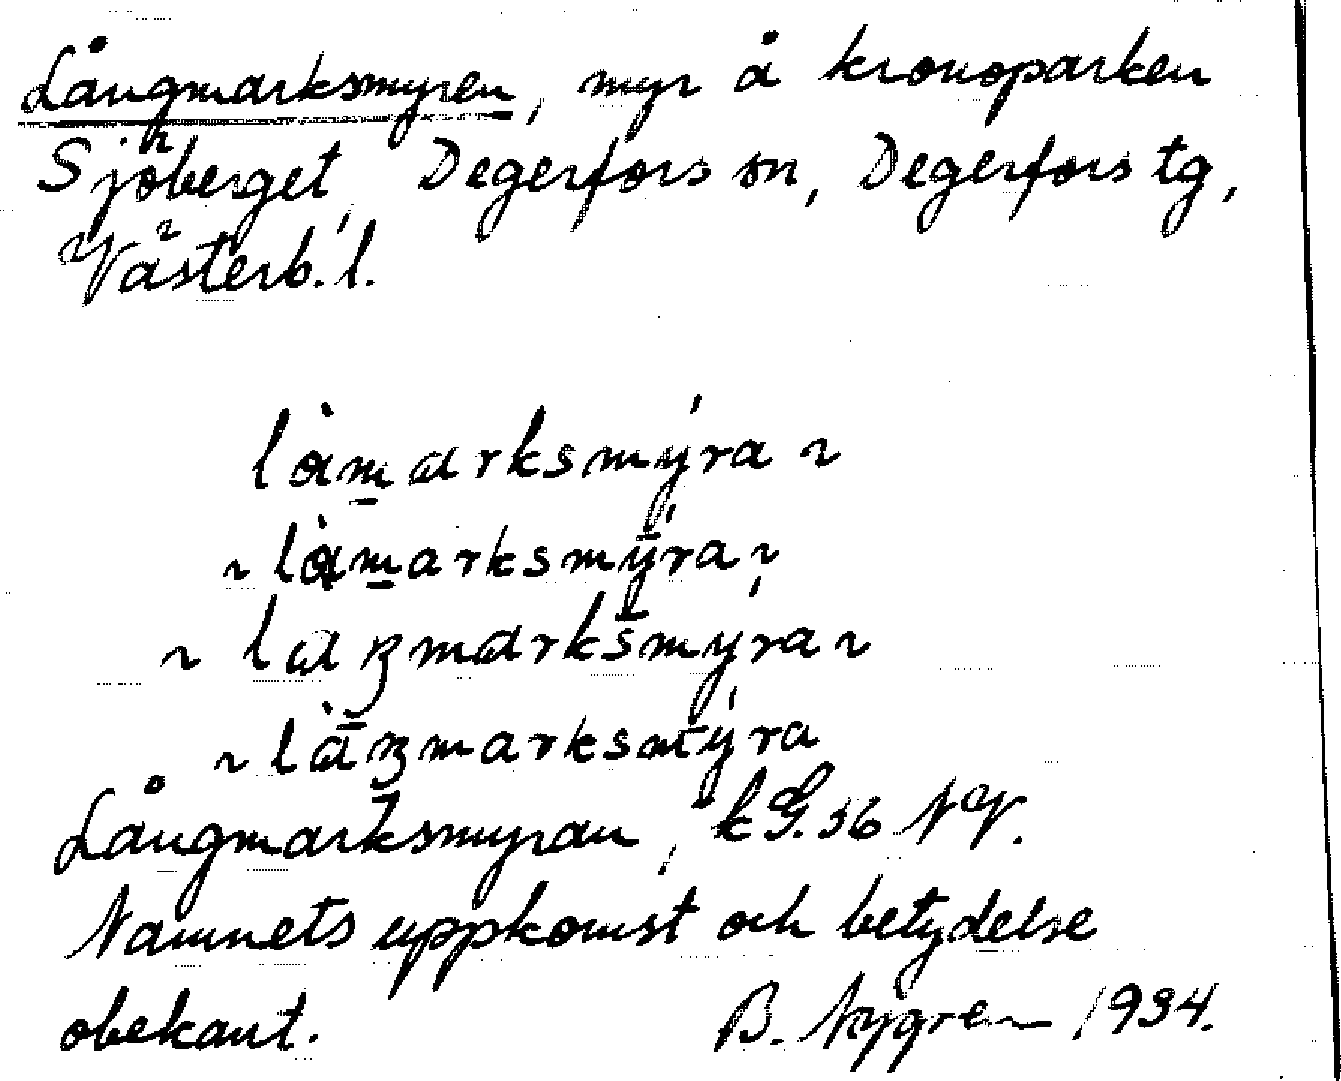 Långmarksmyren, myr å kronoparken
Sjöberget, Degerfors sn, Degerfors tg,
Västerb. l.
làmarksmýra ~
~ làmarksmýra ~
~ laʒmarksmýra ~
~ làʒmarksmýra
Långmarksmyran, kG. 56 NV.
Namnets uppkomst och betydelse
obekant. B. Nygren 1934.